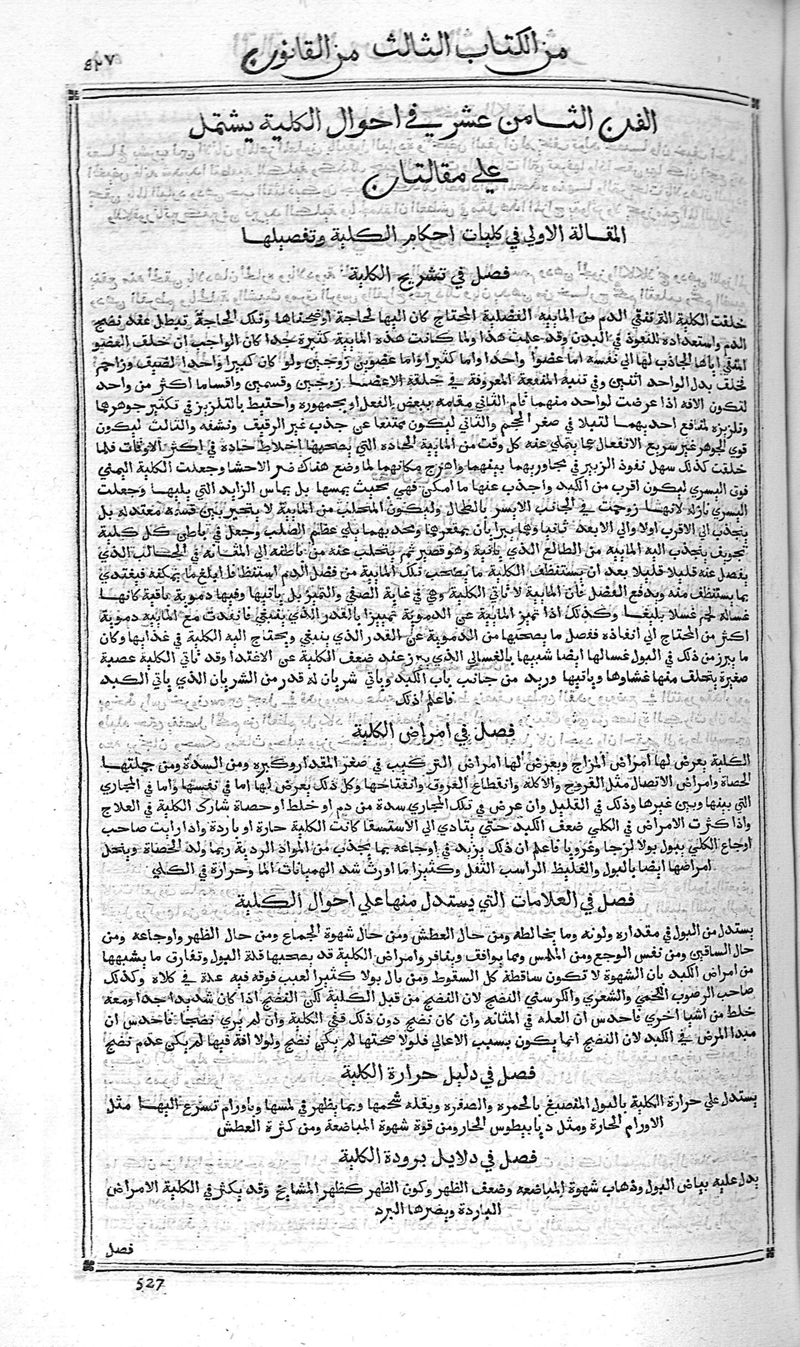 من الكتاب الثالث من القانون
الفن الثامن عشر في احوال الكلية يشتمل
علي مقالتان
المقالة الاولي في كليات احكام الكلية وتفصيلها
فصل في تشريح الكلية
خلقت الكلية الة تنقي الدم من المايية الفضلية المحتاج كان اليها لحاجة اوضحناها وتلك الحاجة تبطل عند نضج
الدم واستعداده للنفوذ في البدن وقد علمت هذا ولما كانت هذه المايية كثيرة جدا كان الواجب ان خلف العضو
المنقي اياها الجاذب لها الي نفسه اما عضوا واحدا واما كثيرا واما عضوين زوجين ولو كان كبيرا واحدا لضيف وزاحم
فخلف بدل الواحد اثنين وفي تنية المنفعة المعروفة في خلقة الاعضا زوجين وقسمين واقساما اكثر من واحد
لتكون الافة اذا عرضت لواحد منهما قام الثاني مقامه ببعض الفعل او بجمهوره واحتيط بالتلزيز في تكثير جوهرها
وتلزيزه لمنافع احديهما لتيلا في صغر الحجم والثاني ليكون ممتنعا عن جذب غير الرقيف ونشفه والثالث ليكون
قوي الجوهر غير سريع الانفعال عما يتملي عنه كل وقت من المايية الحادة التي يصحبها اخلاط حادة في اكثر الاوقات فلما
خلقت كذلك سهل نفوذ الزبير في مجاورهما بينهما وانفرج مكانهما لما وضع هناك من الاحشا وجعلت الكلية اليمني
فوق اليسري ليكون اقرب من الكبد واجذب عنها ما امكن فهي بحيث يمسها بل يماس الزايد التي يليها وجعلت
اليسري نازلة لانها زوحمت في الجانب الايسر بالطحال وليكون المتحلب من المايية لا يتحير بين قسمة معتدلة بل
ينجذب الي الاقرب اولا والي الابعد ثانيا وهما يتراان بمقعرهما ومحدبهما يلي عظم الصلب وجعل في باطن كل كلية
تجويف ينجذب اليه المايية من الطالع الذي ياتيه وهو قصير ثم يتحلب عنه من باطنه الي المثانة في الحالب الذي
يفصل عنه قليلا قليلا بعد ان يستنظف الكلية ما يصحب تلك المايية من فضل الدم استنظافا ابلغ ما يمكنه فيغتدي
بما يستنظف منه ويدفع الفضل فان المايية لا تاتي الكلية وهي في غاية الصفي والتميز بل ياتيها وفيها دموية باقية كانها
غسالة لحم غسلا بليغا وكذلك اذا تميز المايية عن الدموية تميزا بالقدر الذي ينبغي فانفذت مع المايية دموية
اكثر من المحتاج الي انفاذه ففصل ما يصحبها من الدموية عن القدر الذي ينبغي ويحتاج اليه الكلية في غذايها وكان
ما يبرز من ذلك في البول غساليا ايضا شبيها بالغسالي الذي يبرز عند ضعف الكلية عن الاغتدا وقد تاتي الكلية عصبة
صغيرة يتخلف منها غشاوها وياتيها وريد من جانب باب الكبد وياتي شريان له قدر من الشريان الذي ياتي الكبد
فاعلم ذلك
فصل في امراض الكلية
الكلية يعرض لها امراض المزاج ويعرض لها امراض التركيب في صغر المقدار وكبره ومن السدة ومن جملتها
الحصاة وامراض الاتصال مثل القروح والاكلة وانقطاع العروف وانفتاحها وكل ذلك يعرض لها اما في نفسها واما في المجاري
التي بينها وبين غيرها وذلك في القليل وان عرض في تلك المجاري سدة من دم او خلط او حصاة شارك الكلية في العلاج
واذا كثرت الامراض في الكلي ضعف الكبد حتي يتادي الي الاستسقا كانت الكلية حارة او باردة واذا رايت صاحب
اوجاع الكلي يبول بولا لزجا وغرويا فاعلم ان ذلك يزيد في اوجاعه بما يجذب من المواد الردية ربما ولد الحصاة وينحل
امراضها ايضا بالبول والغليظ الراسب الثفل وكثيرا ما اورث شد الهميانات الما وحرارة في الكلي
فصل في العلامات التي يستدل منها علي احوال الكلية
يستدل من البول في مقداره ولونه وما يخالطه ومن حال العطش ومن حال شهوة الجماع ومن حال الظهر واوجاعه ومن
حال الساقين ومن نفس الوجع ومن الملمس وما يوافق وينافر وامراض الكلية قد يصحبها قلة البول وتفارق ما يشبهها
من امراض الكبد بان الشهوة لا تكون ساقطة كل السقوط ومن بال بولا كثيرا لعيب فوقه فيه علة في كلاه وكذلك
صاحب الرصوب اللحمي والشعري والكرسني النضج لان النضج من قبل الكلية لكن النضج اذا كان شديدا جدا ومعه
خلط من اشيا اخري فاحدس ان العلة في المثانة وان كان نضج دون ذلك ففي الكلية وان لم يري نضجا فاحدس ان
مبدا المرض في الكبد لان النضج انما يكون بسبب الاعالي فلولا صحتها لم يكن نضج ولولا افة فيها لم يكن عدم نضج
فصل في دليل حرارة الكلية
يستدل علي حرارة الكلية بالبول المنصبغ بالحمرة والصفرة وبقلة شحمها وبما يظهر في لمسها وباورام تتسرع اليها مثل
الاورام الحارة ومثل ديابيطوس الحار ومن قوة شهوة المباضعة ومن كثرة العطش
فصل في دلايل برودة الكلية
يدل عليه بياض البول وذهاب شهوة المباضعة وضعف الظهر وكون الظهر كظهر المشايخ وقد يكثر في الكلية الامراض
الباردة ويضرها البرد
فصل
527